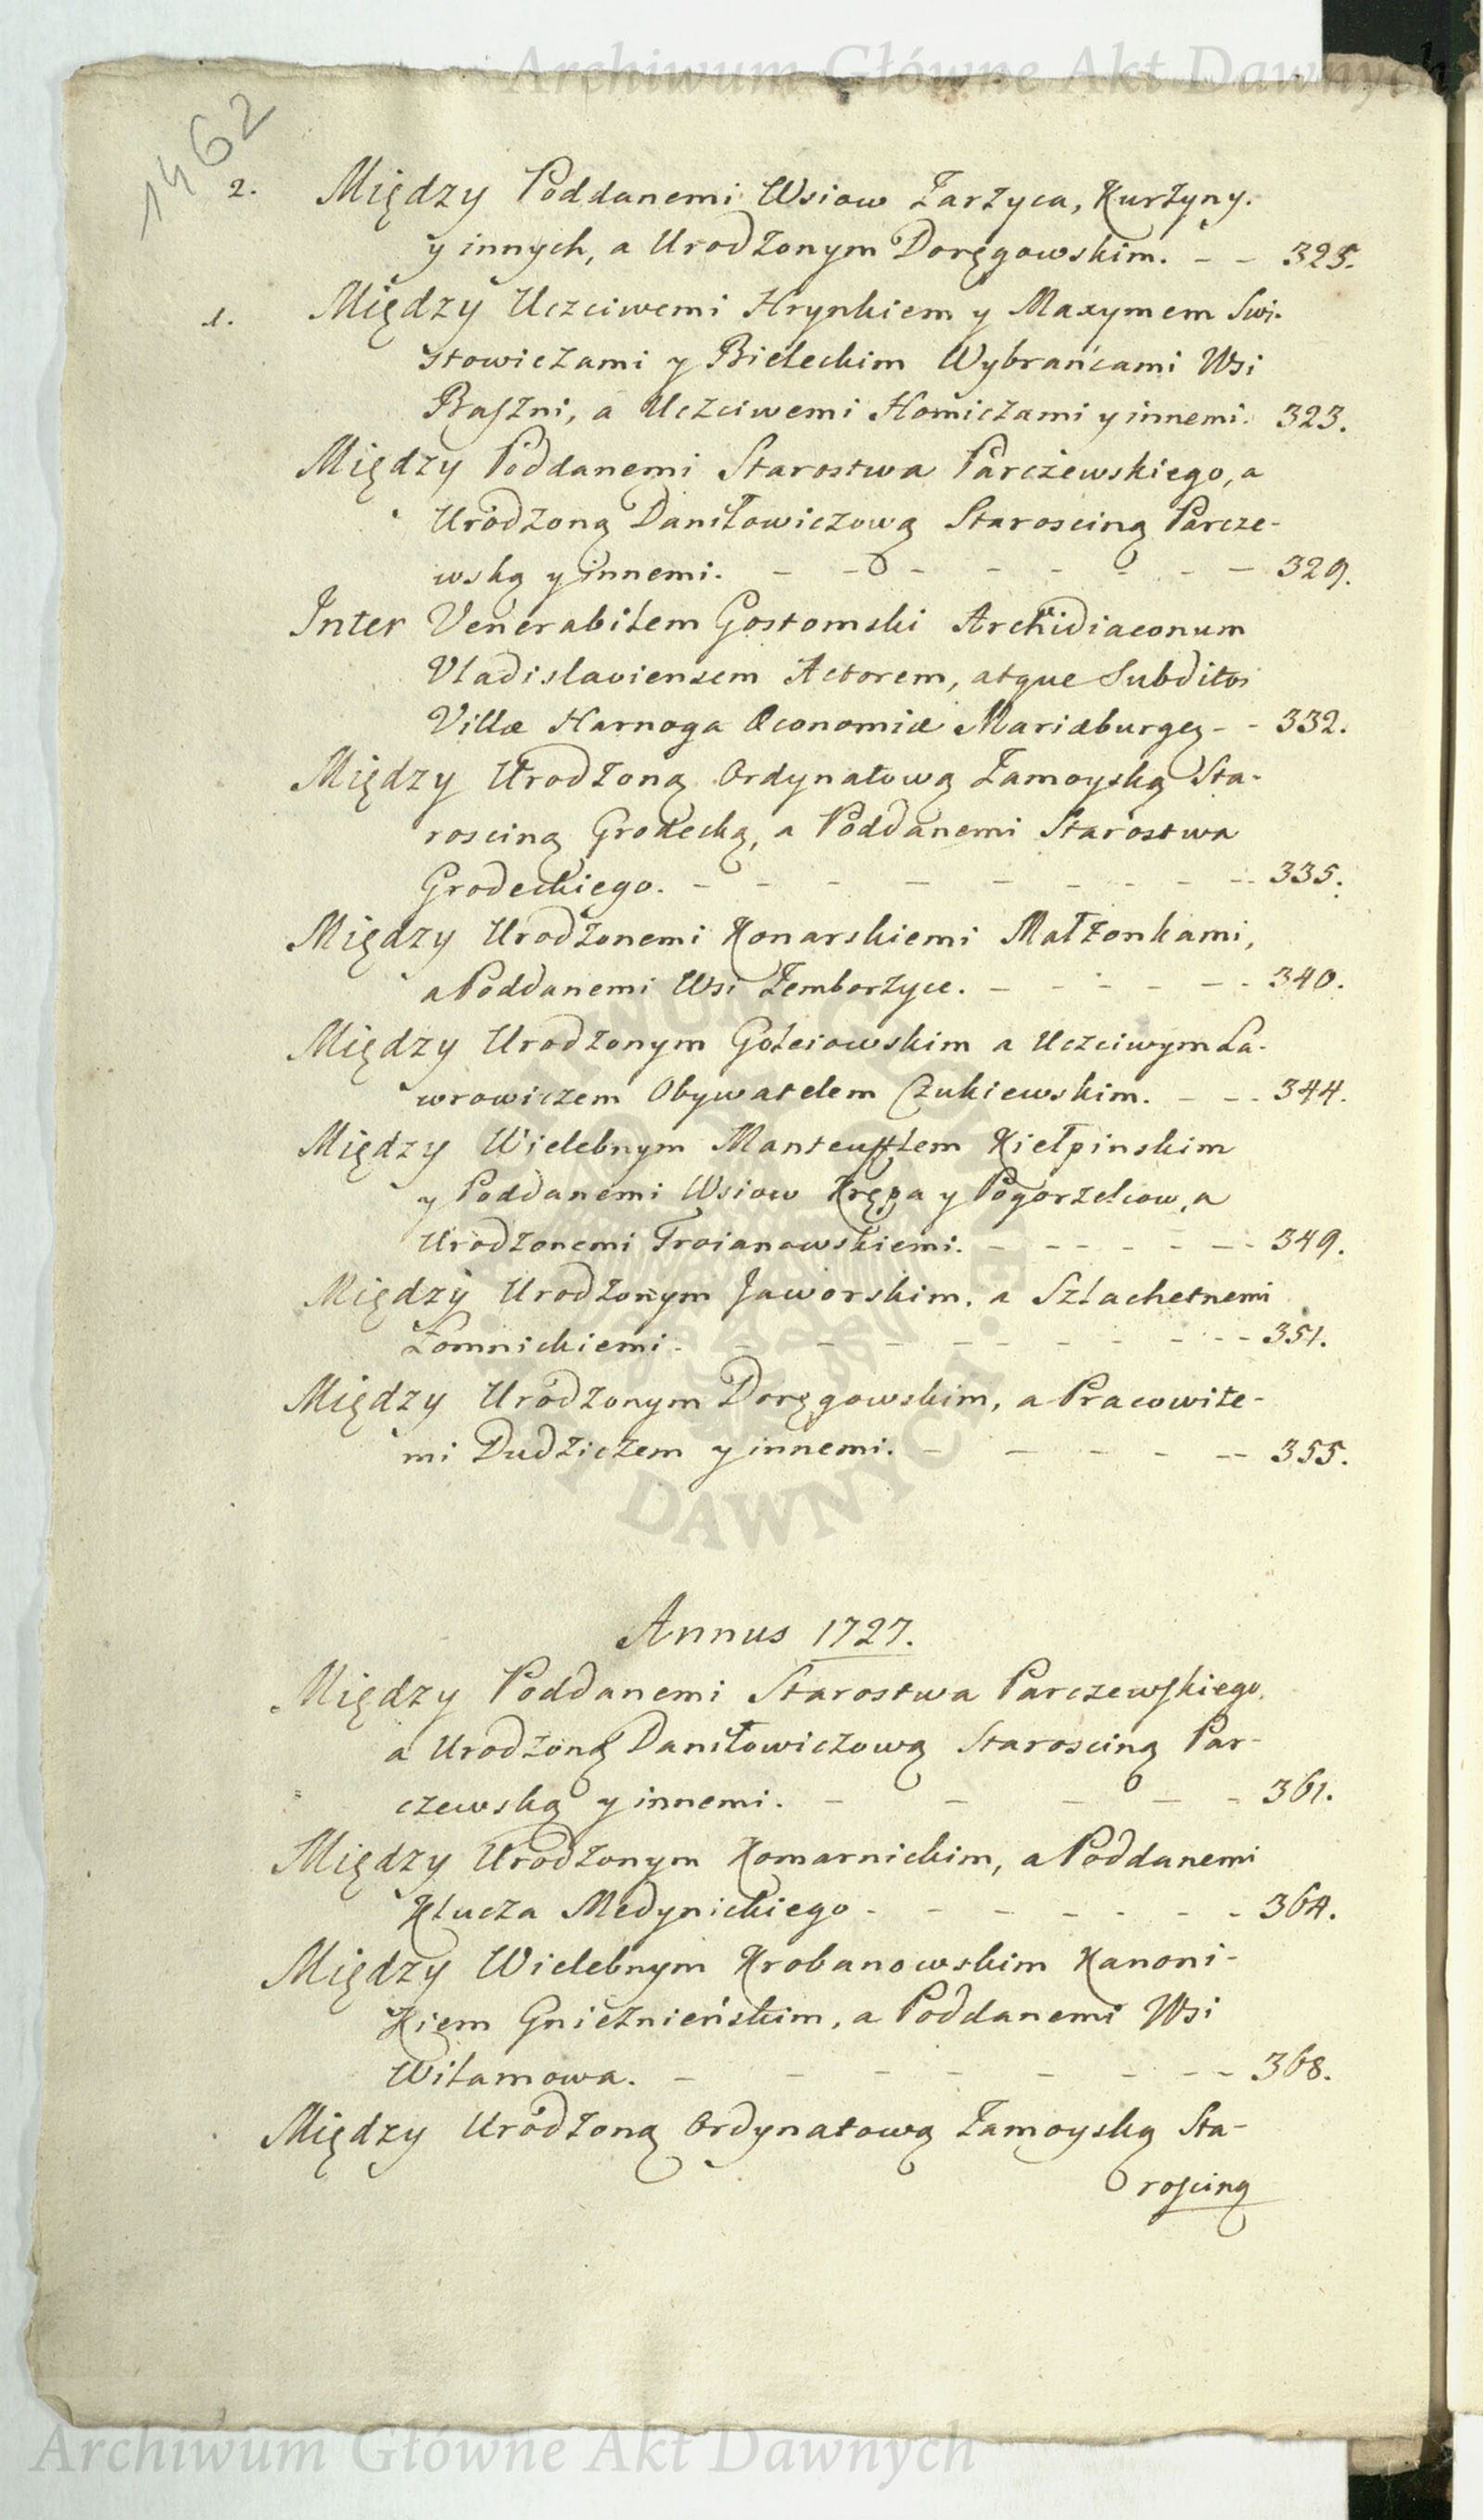 Archiwum Główne Akt Dawnych
1462
2. Między Poddanemi Wsiow Zarzyca, Kurzyny.
y innych, a Urodzonym Doręgowskim. - - 325.
1. Między Uczciwemi Hrynkiem y Maxymem Swi-
stowiczami y Bieleckim Wybrańcami Wsi
Baszni, a Uczciwemi Homiczami y innemi. 323.
Między Poddanemi Starostwa Parczewskiego, a
Urodzoną Daniłowiczową Starosciną Parcze-
wską y innemi. - - - - - - - - 329.
Inter Venerabilem Gostomski Archidiaconum
Vladislaviensem Actorem, atque Subditos
Villæ Harnoga Œconomiæ Mariæburgen - - 332.
Między Urodzoną Ordynatową Zamoyską Sta-
rosciną Grodecką, a Poddanemi Starostwa
Grodeckiego. - - - - - - - - - 335.
Między Urodzonemi Konarskiemi Małżonkami,
a Poddanemi Wsi Zemborzyce. - - - - - - 340.
Między Urodzonym Goleiowskim a Uczciwym La-
wrowiczem Obywatelem Czukiewskim. - - - 344.
Między Wielebnym Manteufflem Kiełpinskim
y Poddanemi Wsiow Krępa y Pogorzelcow, a
Urodzonemi Troianowskiemi. - - - - - - 349.
Między Urodzonym Jaworskim, a Szlachetnemi
Łomnickiemi. - - - - - - - - - 351.
Między Urodzonym Doręgowskim, a Pracowite-
mi Dudziczem y innemi. - - - - - 355.
Annus 1727.
Między Poddanemi Starostwa Parczewskiego,
a Urodzoną Daniłowiczową Starosciną Par-
czewską y innemi. - - - - - 361.
Między Urodzonym Komarnickim, a Poddanemi
Klucza Medynickiego - - - - - - - 364.
Między Wielebnym Krobanowskim Kanoni-
kiem Gnieznieńskim, a Poddanemi Wsi
Wilamowa. - - - - - - - - 368.
Między Urodzoną Ordynatową Zamoyską Sta-
rosciną
Archiwum Główne Akt Dawnych